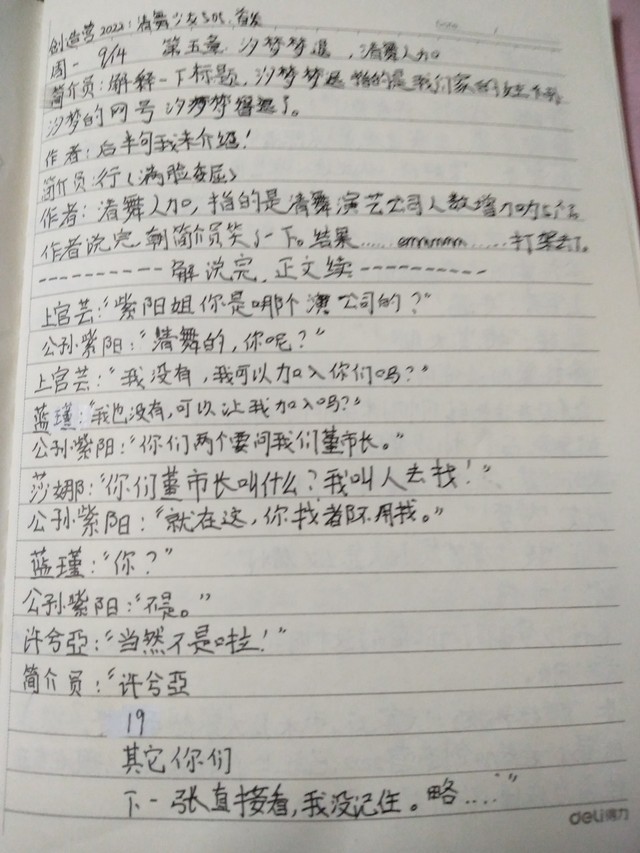 创造营2022:清舞少女
周一 9/14 第五集 汐梦梦退,清舞人加
简介员:解释一下标题,汐梦梦退指的是我们家的
汐梦的网号汐梦梦退了。
作者:后半句我来介绍!
简介员:行(满脸委屈)
作者:清舞人加,指的是清舞演艺公司人数增加
作者说完,朝简介员笑了一下。结果……emmmm……打架去了。
----------解说完,正文续----------
上官芸:“紫阳姐你是哪个演公司的?”
公孙紫阳:“清舞的,你呢?”
上官芸:“我没有,我可以加入你们吗?”
蓝瑾:“我也没有,可以让我加入吗?”
公孙紫阳:“你们两个要问我们董市长。”
莎娜:“你们董市长叫什么?我叫人去找!”
公孙紫阳:“就在这,你找都不用找。”
蓝瑾:“你?”
公孙紫阳:“不是。”
许兮亞:“当然不是啦!”
简介员:“许兮亞
19
其它你们
下一张直接看,我没记住。略....”
deli得力